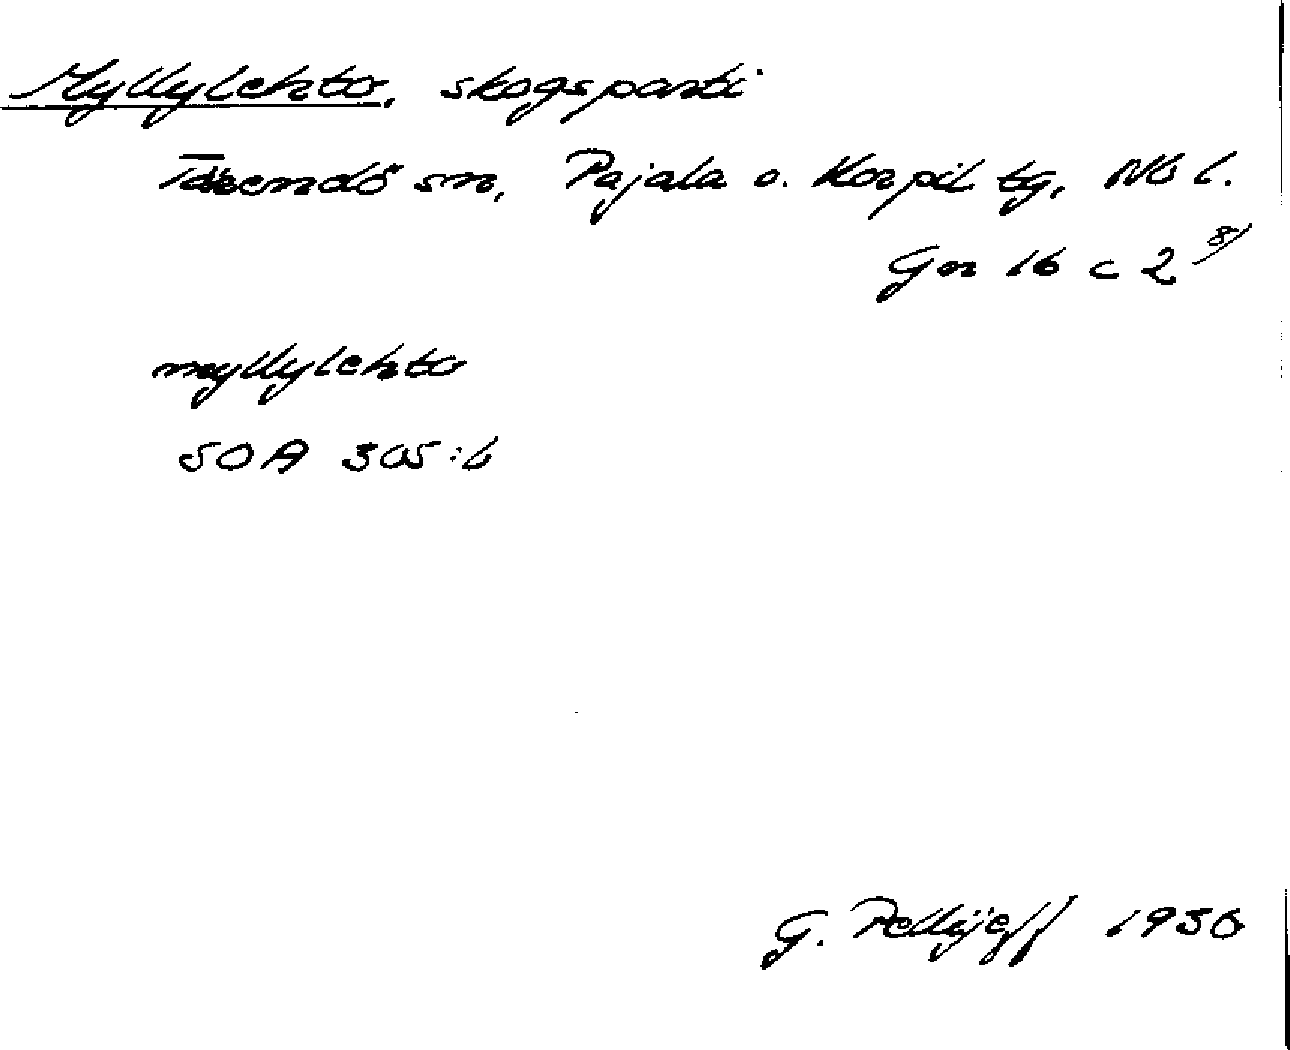 Myllylehto, skogsparti
Tärendö sn, Pajala o. Korpil tg, Nb l.
Gr 16 c 2 8)
myllylehto
SOA 305:6
G. Pellijeff 1956